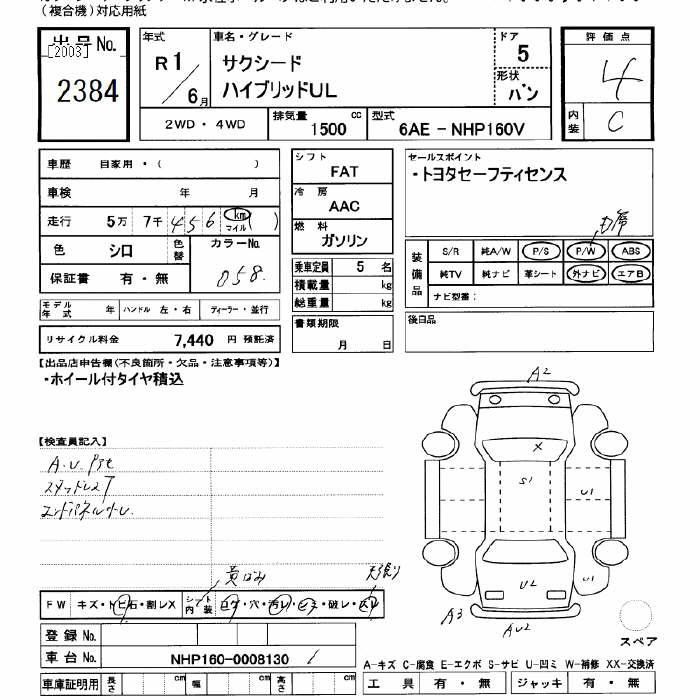 (複合機)対応用紙
出品 No.
[2003]
2384
年式
R 1
6月
車名・グレード
サクシード
ハイブリッドUL
ドア
5
形状
バン
評価点
4
内装
C
2WD・4WD
排気量
1500 cc
型式
6AE-NHP160V
車歴 自家用・( )
車検 年 月
走行 5万 7千 456 km マイル ( )
色 シロ 色替 カラーNo.
058
保証書 有・無
モデル年式 年 ハンドル 左・右 ディーラー・並行
リサイクル料金 7,440 円 預託済
シフト
FAT
冷房
AAC
燃料
ガソリン
乗車定員 5 名
積載量 kg
総重量 kg
書類期限
月 日
セールスポイント
・トヨタセーフティセンス
装備品
S/R 純A/W P/S P/W ABS
純TV 純ナビ 革シート 外ナビ エアB
ナビ型番:
後日品
【出品店申告欄(不良箇所・欠品・注意事項等)】
・ホイール付タイヤ積込
【検査員記入】
スタッドレス7
A2
X
S1
U1
UL
U1
A3
AU2
スペア
黄ばみ
FW キズ・トビ石・割レX シート内装 コゲ・穴・汚レ・シミ・破レ・スレ
登録 No.
車台 No. NHP160-0008130
車庫証明用 長さ cm 幅 cm 高さ cm
A-キズ C-腐食 E-エクボ S-サビ U-凹ミ W-補修 XX-交換済
工具 有・無 ジャッキ 有・無